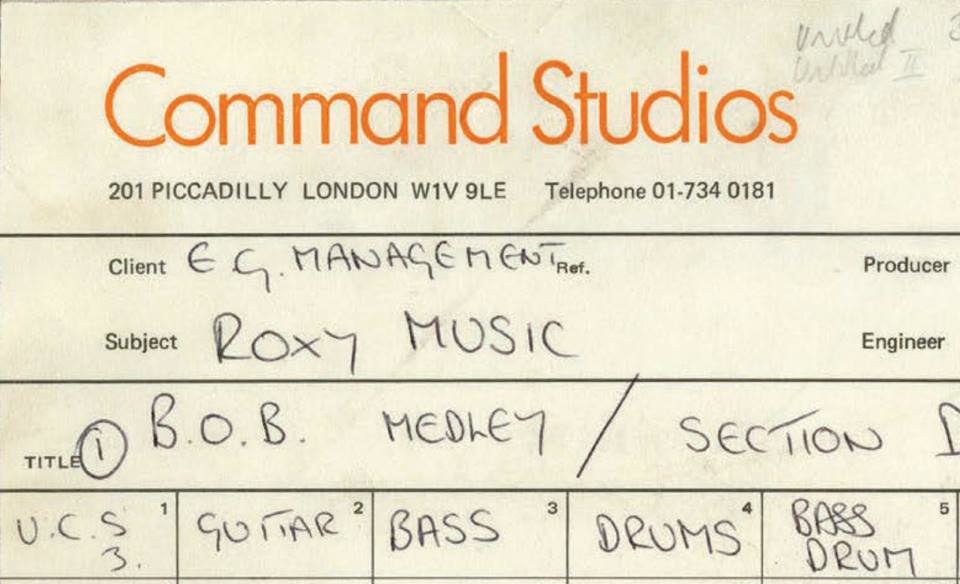 Command Studios
201 PICCADILLY LONDON W1V 9LE Telephone 01-734 0181
Client E.G. MANAGEMENT Ref. Producer
Subject ROXY MUSIC Engineer
TITLE 1 B.O.B. MEDLEY / SECTION
1 2 3 4 5
V.C.S 3. GUITAR BASS DRUMS BASS DRUM